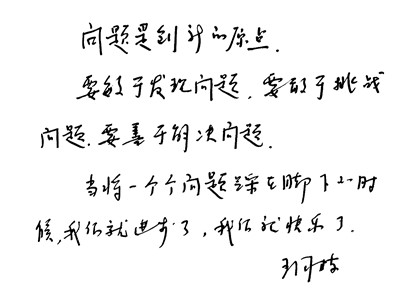 问题是创新的原点.
要敢于发现问题.要敢于挑战
问题.要善于解决问题.
当将一个个问题踩在脚下的时
候,我们就进步了,我们就快乐了.